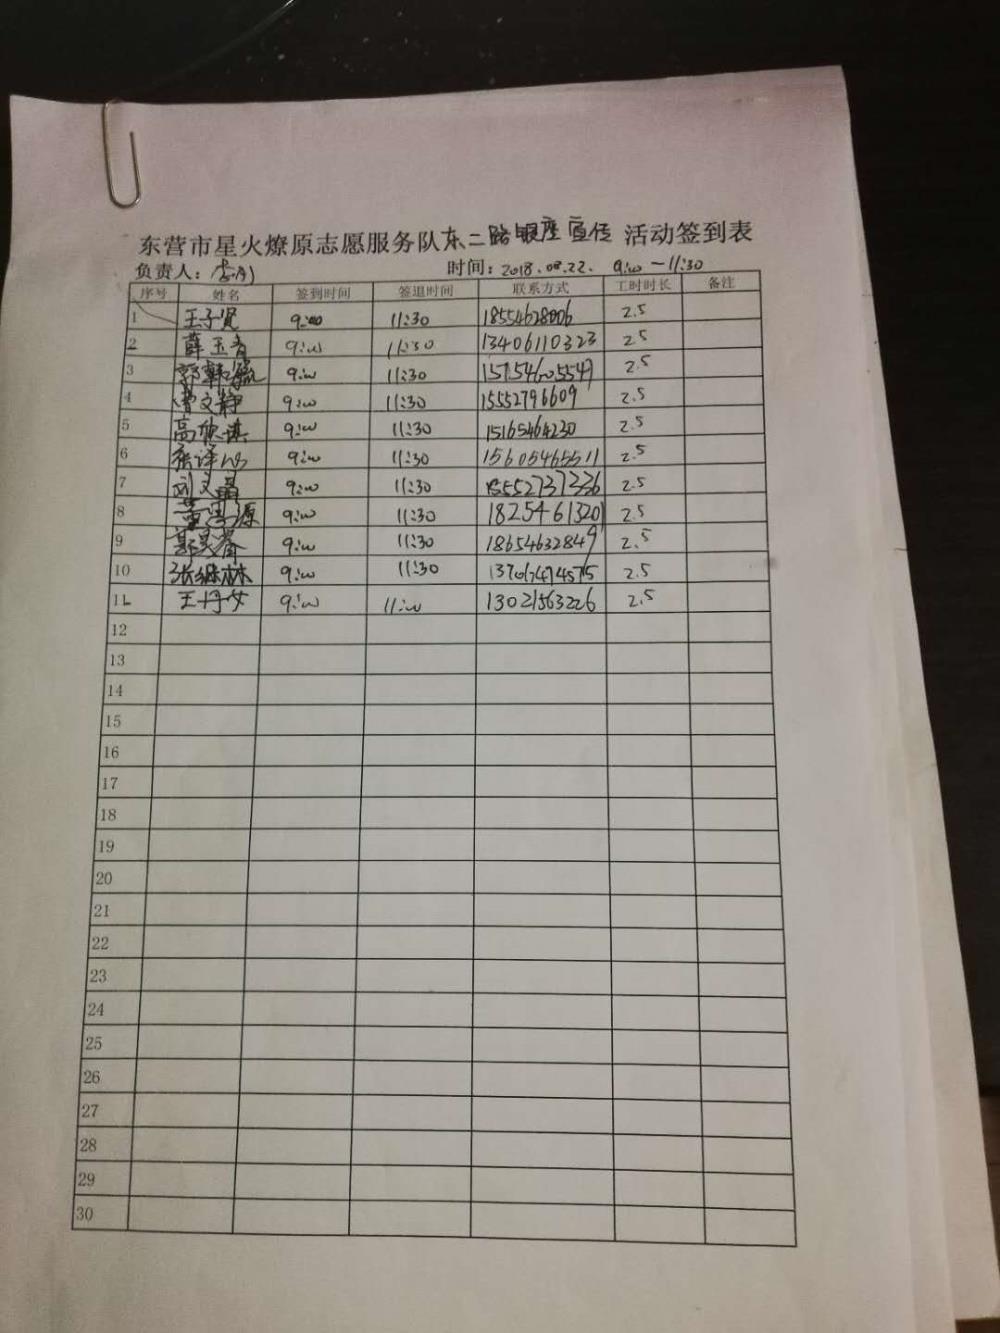 东营市星火燎原志愿服务队东二路银座宣传 活动签到表
负责人： 时间：2018.08.22. 9:00~11:30
序号 姓名 签到时间 签退时间 联系方式 工时时长 备注
1 王子贤 9:00 11:30 18554628006 2.5
2 薛玉香 9:00 11:30 13406110323 2.5
3 9:00 11:30 15754605549 2.5
4 曹文静 9:00 11:30 15552796609 2.5
5 9:00 11:30 15165464230 2.5
6 9:00 11:30 15605465511 2.5
7 刘文晶 9:00 11:30 15552737336 2.5
8 董思源 9:00 11:30 18254613201 2.5
9 9:00 11:30 18654632849 2.5
10 张继林 9:00 11:30 2.5
11 王丹女 9:00 11:00 13021563226 2.5
12
13
14
15
16
17
18
19
20
21
22
23
24
25
26
27
28
29
30